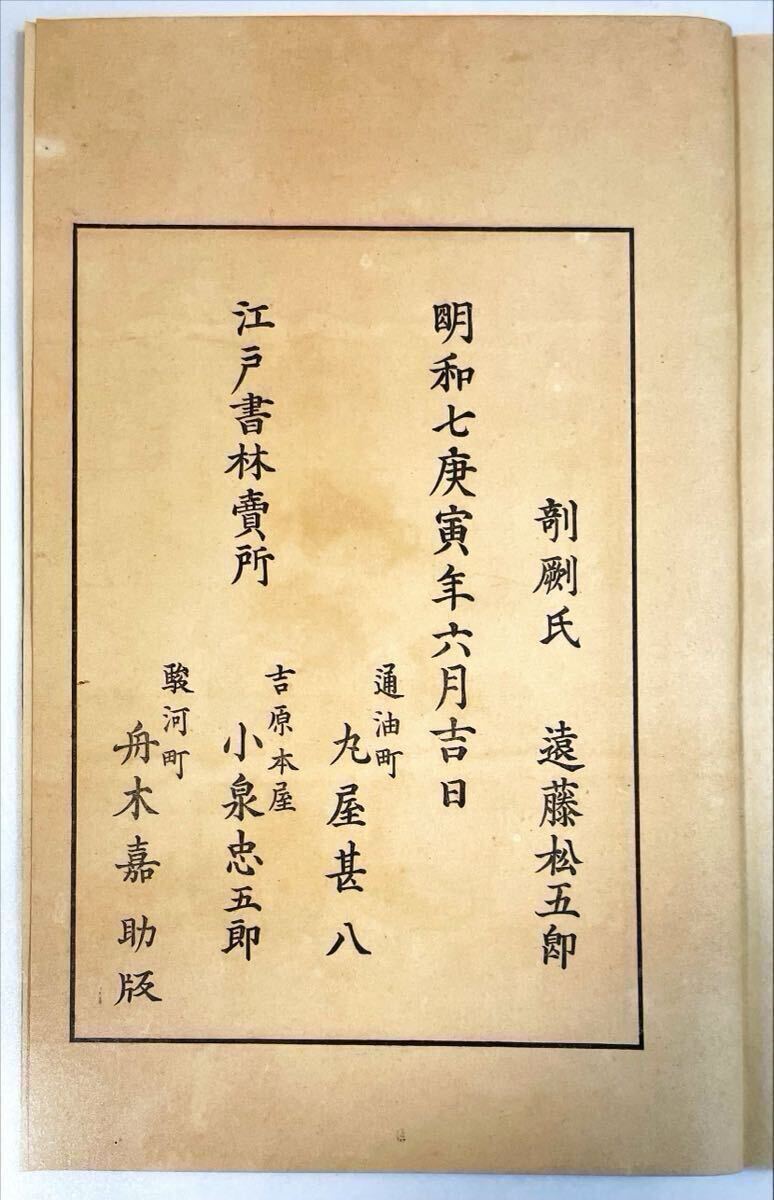 剞劂氏　遠藤松五郎
明和七庚寅年六月吉日
通油町
丸屋甚八
江戸書林賣所
吉原本屋
小泉忠五郎
駿河町
舟木嘉助版